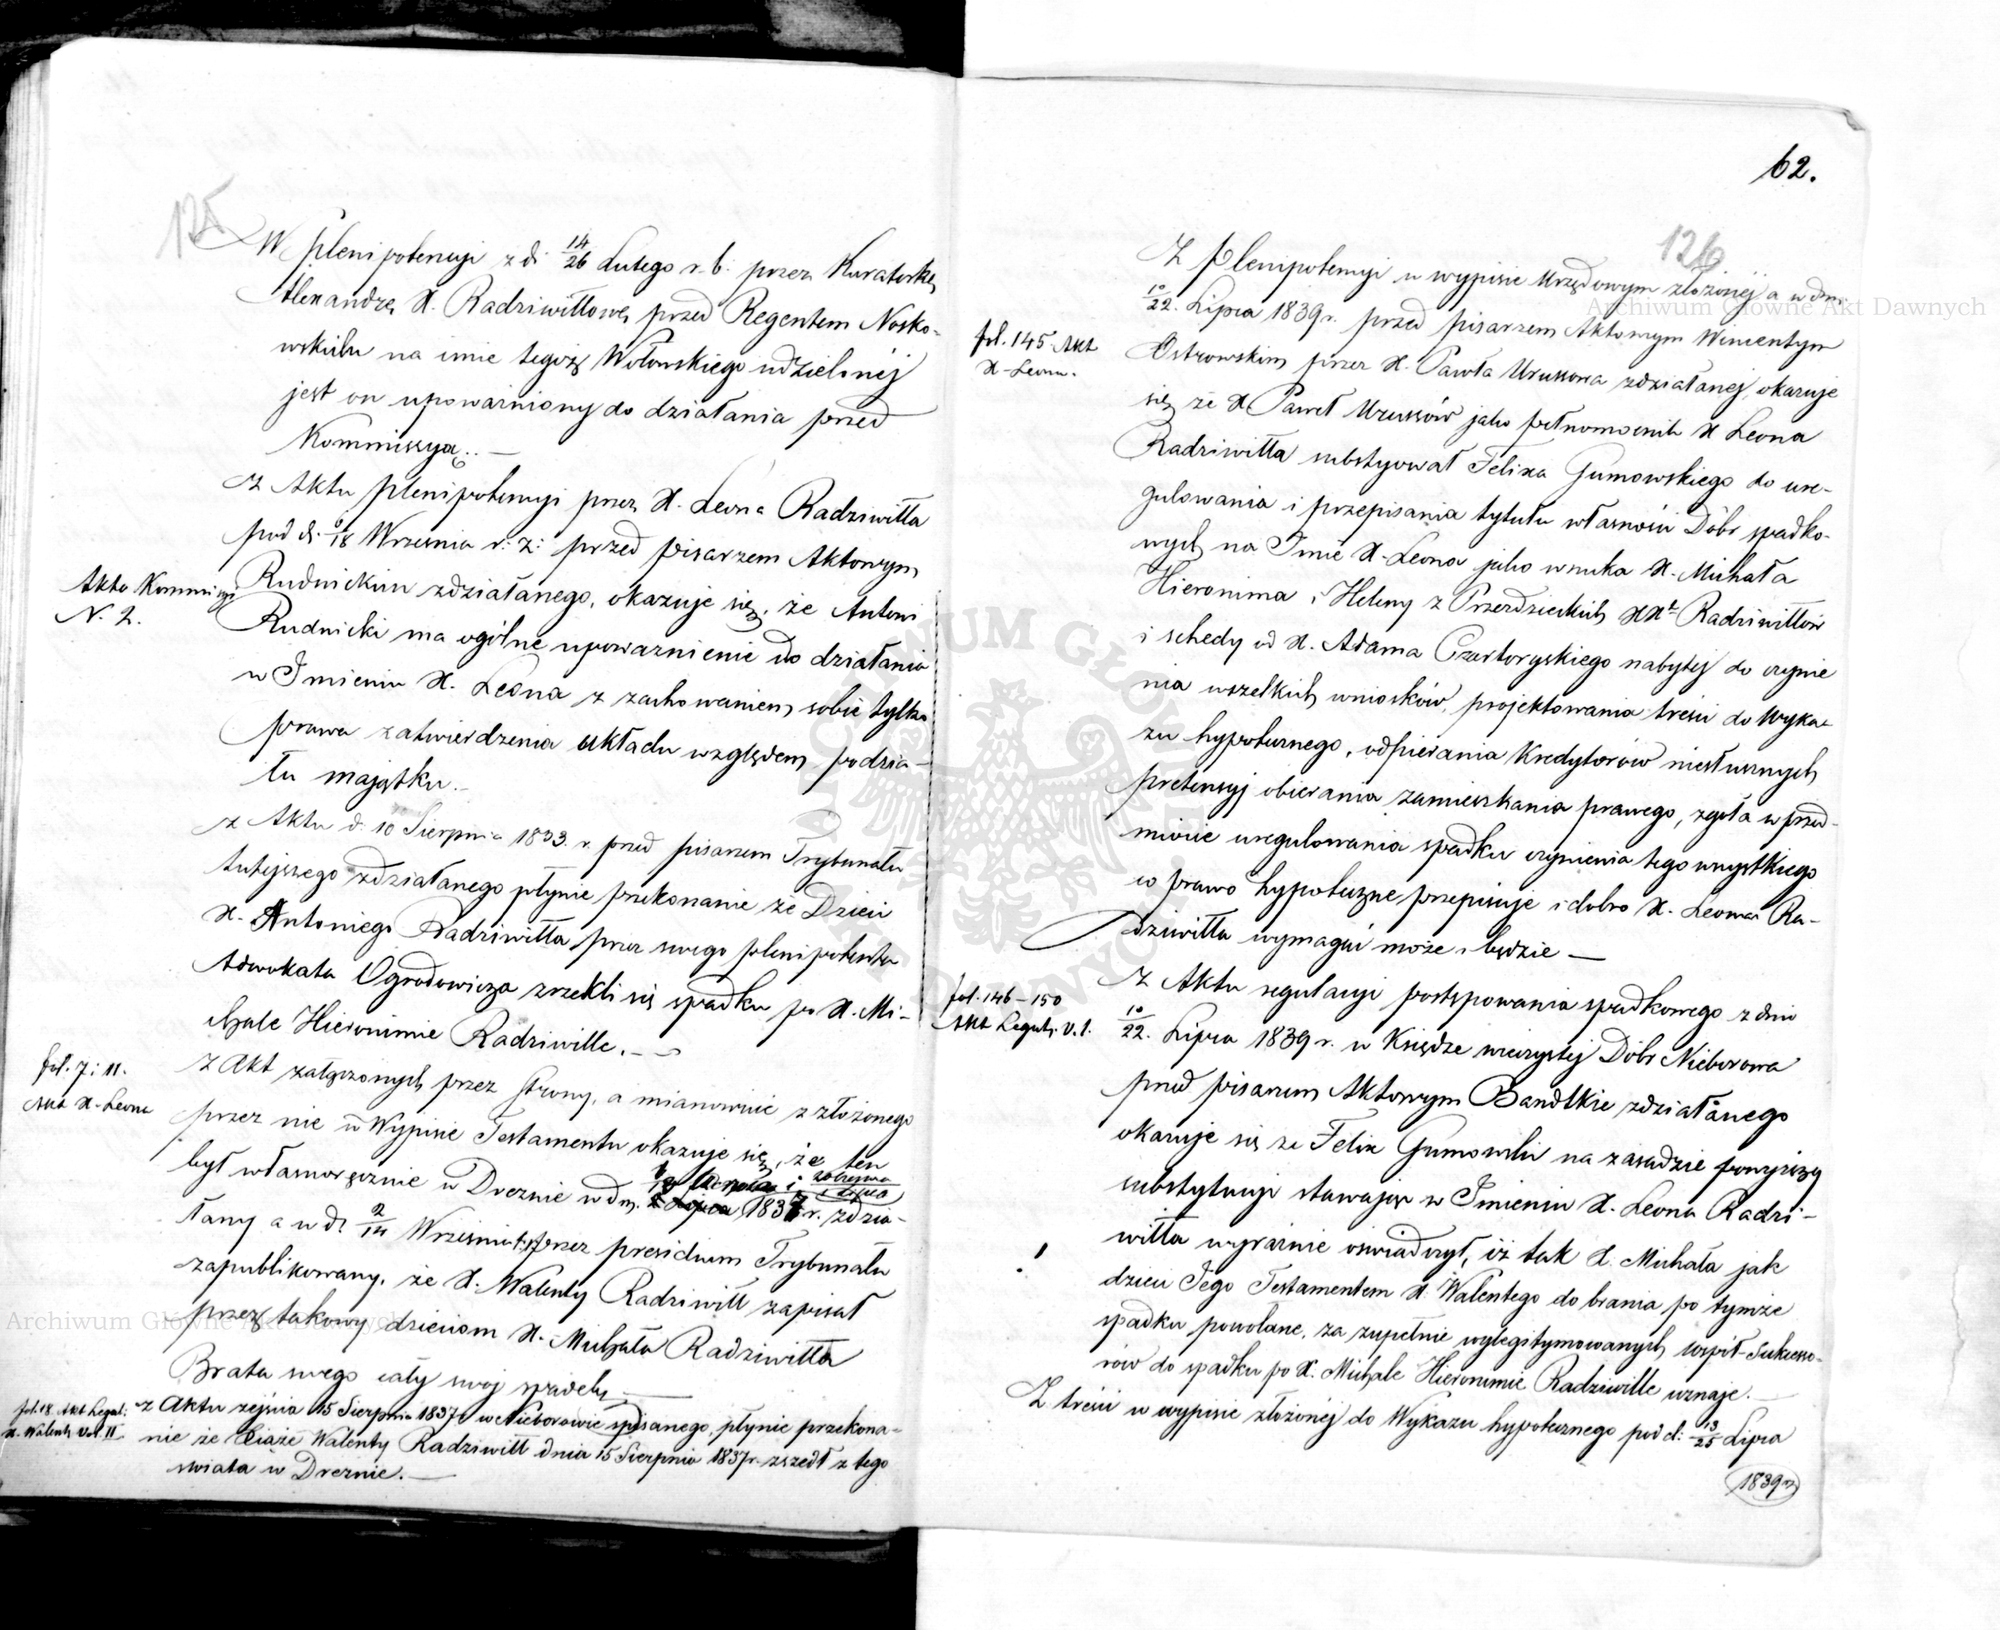 125
W plenipotencyi z d: 14/26 Lutego r. b. przez Kuratorkę
Alexandrę X. Radziwiłłowę przed Regentem Nosko-
wskim na imie tegoż Wołowskiego udzielonéj
jest on upoważniony do działania przed
Kommissyą. —
Z Aktu plenipotencyi przez X. Leona Radziwiłła
pod d. 6/18 Września r. z: przed pisarzem Aktowym
Akta Kommissyi
N. 2.
Rudnickim zdziałanego, okazuje się, że Antoni
Rudnicki ma ogólne upoważnienie do działania
w Imieniu X. Leona z zachowaniem sobie tylko
prawa zatwierdzenia układu względem podzia-
łu majątku. —
z Aktu d. 10 Sierpnia 1833 r. przed pisarzem Trybunału
tutejszego zdziałanego płynie przekonanie że Dzieci
X. Antoniego Radziwiłła przez swego plenipotenta
Adwokata Ogrodowicza zrzekli się spadku po X. Mi-
chale Hieronimie Radziwille. —
fol. 7 i 11.
Akt X. Leona
Z Akt załączonych przez strony, a mianowicie z złożonego
przez nie w Wypisie Testamentu okazuje się, że ten
był własnoręcznie w Dreznie w dn. 1837 r. zdzia-
łany a w d. 2/14 Września t. r. przez presidium Trybunału
zapublikowany, że X. Walenty Radziwiłł zapisał
przez takowy dzieciom X. Michała Radziwiłła
Brata swego cały swój spadek —
fol. 18. Akt Legat:
X. Walent. Vol. II
z Aktu zejścia 15 Sierpnia 1837 r. w Nieborowie spisanego, płynie przekona-
nie że Xiąże Walenty Radziwiłł dnia 15 Sierpnia 1837 r. zszedł z tego
świata w Dreznie. —
62.
126
Z Plenipotencyi w wypisie Urzędowym złożonéj a w dn.
10/22. Lipca 1839 r. przed pisarzem Aktowym Wincentym
fol. 145. Akt
X. Leona.
Ostrowskim przez X. Pawła Urussowa zdziałanej, okazuje
się że X. Paweł Urussów jako pełnomocnik X. Leona
Radziwiłła substyował Felixa Gumowskiego do ure-
gulowania i przepisania tytułu własności Dóbr spadko-
wych na Imie X. Leona jako wnuka X. Michała
Hieronima i Heleny z Przezdzieckich XXt Radziwiłłów
i schedy od X. Adama Czartoryskiego nabytej do czynie
nia wszelkich wniosków, projektowania treści do Wyka-
zu hypotecznego, odpierania Kredytorów niesłusznych
pretensyj obierania zamieszkania prawego, zgoła w przed-
miocie uregulowania spadku czynienia tego wszystkiego
co prawo hypoteczne przepisuje i dobro X. Leona Ra-
dziwiłła wymagać może i będzie —
fol. 146-150
Akt Legat. V. 1.
Z Aktu regulacyi postępowania spadkowego z dnia
10/22. Lipca 1839 r. w Księdze wieczystej Dóbr Nieborowa
przed pisarzem Aktowym Bandtkie zdziałanego
okazuje się że Felix Gumowski na zasadzie powyższej
substytucyi stawając w Imieniu X. Leona Radzi-
wiłła wyraźnie oświadczył, iż tak X. Michała jak
dzieci Jego Testamentem X. Walentego do brania po tymże
spadku powołane, za zupełnie wylegitymowanych współ-Sukcesso-
rów do spadku po X. Michale Hieronimie Radziwille uznaje. —
Z treści w wypisie złożonéj do Wykazu hypotecznego pod d: 13/25 Lipca
1839 r.
Archiwum Główne Akt Dawnych
Archiwum Główne Akt Dawnych
ARCHIWUM GŁÓWNE AKT DAWNYCH